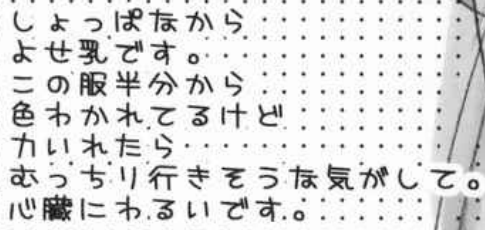 しょっぱなから
よせ乳です。
この服半分から
色わかれてるけど
力いれたら
むっちり行きそうな気がして。
心臓にわるいです。